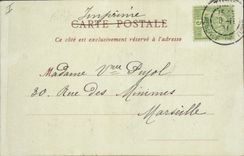 Imprimé
CARTE POSTALE
Ce côté est exclusivement réservé à l'adresse
Madame Vve Pujol
30. Rue des Minimes
Marseille